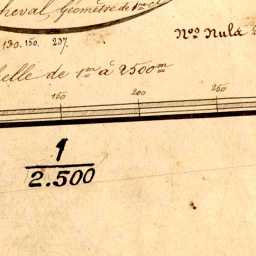 cheval, Géomètre de 1re cl
Nos. Nuls
130. 150. 237.
elle de 1m à 2500m
150 200 250
1
2.500